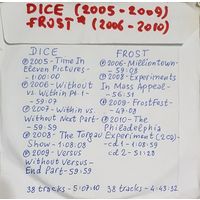 DICE (2005-2009)
FROST* (2006-2010)
DICE
℗ 2005-Time In
Eleven Pictures -
1:00:00
℗ 2006-Without
vs Within Pt.1 -
59:07
℗ 2007-Within vs
Without Next Part-
- 59:59
℗ 2008-The Torgau
Show-1:08:08
℗ 2009-Versus
Without Versus-
End Part-59:59
38 tracks - 5:07:10
FROST
℗ 2006-Milliontown-
- 59:08
℗ 2008-Experiments
In Mass Appeal-
- 56:31
℗ 2009-FrostFest-
- 47:08
℗ 2010-The
Philadelphia
Experiment (2CD)-
- cd1-1:08:59
cd 2-51:28
38 tracks - 4:43:32